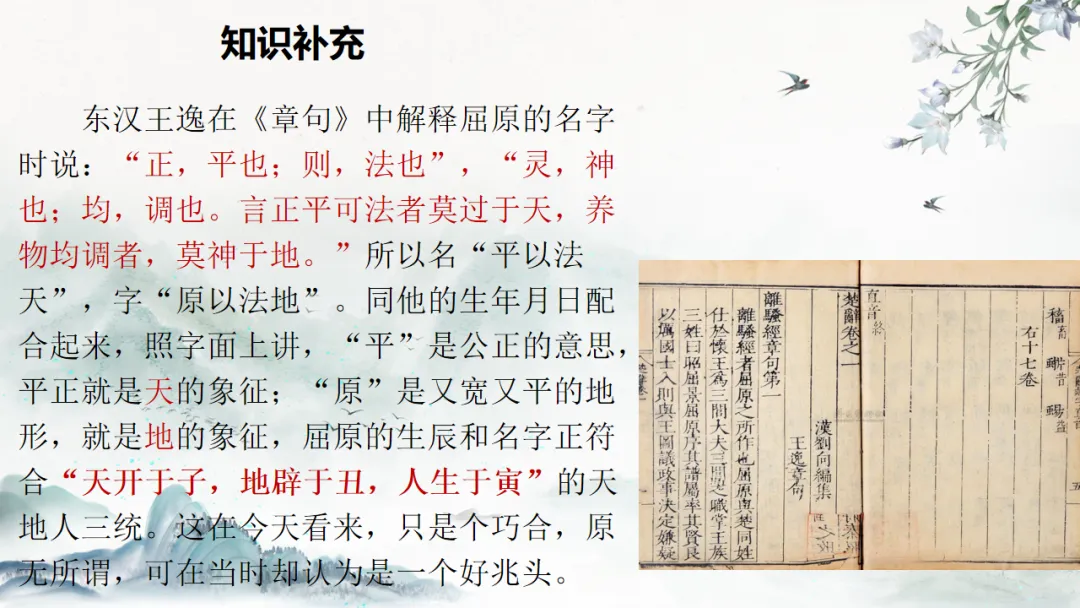 知识补充
东汉王逸在《章句》中解释屈原的名字
时说：“正，平也；则，法也”，“灵，神
也；均，调也。言正平可法者莫过于天，养
物均调者，莫神于地。”所以名“平以法
天”，字“原以法地”。同他的生年月日配
合起来，照字面上讲，“平”是公正的意思，
平正就是天的象征；“原”是又宽又平的地
形，就是地的象征，屈原的生辰和名字正符
合“天开于子，地辟于丑，人生于寅”的天
地人三统。这在今天看来，只是个巧合，原
无所谓，可在当时却认为是一个好兆头。
右十七卷
直音
楚辭卷之一
漢劉向編集
王逸章句
離騷經章句第一
離騷經者屈原之所作也屈原與楚同姓
仕於懷王爲三閭大夫三閭之職掌王族
三姓曰昭屈景屈原序其譜屬率其賢良
以厲國士入則與王圖議政事決定嫌疑